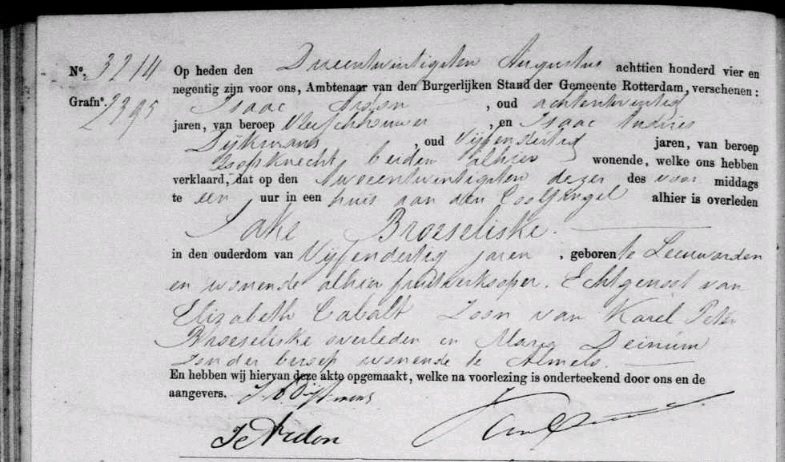 No. 3214 Op heden den Drieentwintigsten Augustus achttien honderd vier en
negentig zijn voor ons, Ambtenaar van den Burgerlijken Stand der Gemeente Rotterdam, verschenen:
Grafno. 2395 Isaac , oud achtentwintig
jaren, van beroep Vleeschhouwer , en Isaac Andries
Dijkmans , oud Vijfendertig jaren, van beroep
loopknecht beiden alhier wonende, welke ons hebben
verklaard, dat op den tweeentwintigsten dezer des voor middags
te een uur in een huis aan den Coolsingel alhier is overleden
Sake Broeseliske.
in den ouderdom van Vijfendertig jaren , geboren te Leeuwarden
en wonende alhier fruitverkooper. Echtgenoot van
Elizabeth Cabalt Zoon van Karel Peter
Broeseliske overleden en Deinum
zonder beroep wonende te Almelo.
En hebben wij hiervan deze akte opgemaakt, welke na voorlezing is onderteekend door ons en de
aangevers.